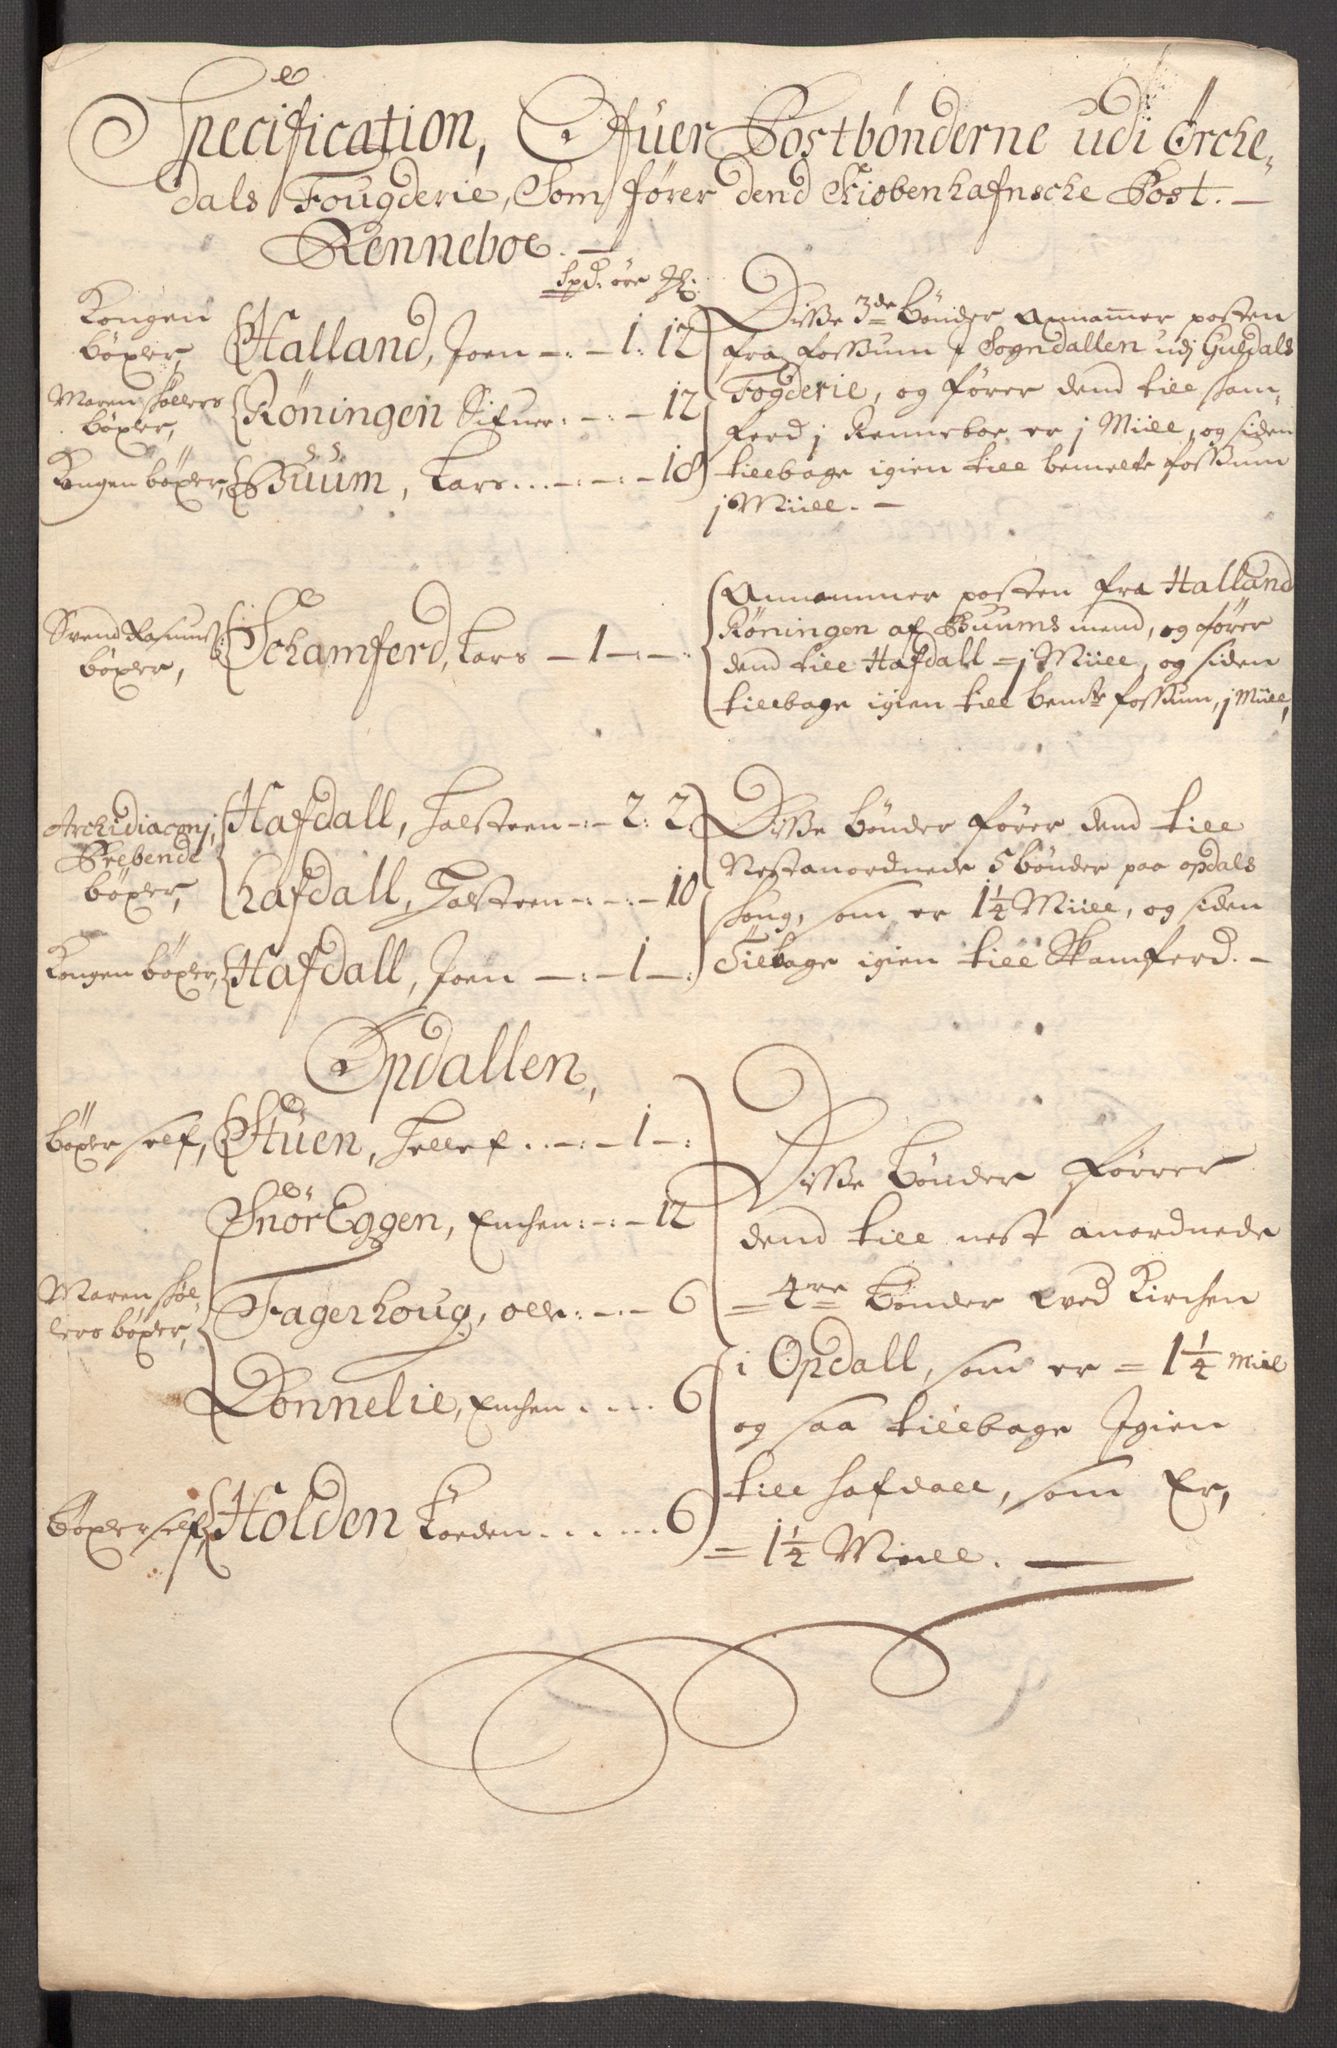 Specification, Ofuer Postbønderne udi Orche,
dals Fougderie, Som fører dend Kiøbenhafnsche Post. —
Renneboe. —
Spd: øre
Kongen
bøxler, Halland, Joen — : — 1 : 12
Maren Søllers
bøxler, Røningen : — : — 12
Kongen bøxler, Buum, Lars . . . — : — : — 18
Disse 3de bønder Annammer posten
fra Fossum i Sogndallen udj Guldals
Fogderie, og fører dend till Scham,
ferd j Renneboe er j Miill, og siden
tillbage igien till bemelte Fossum
j Miill. —
Svend Rasmus:
bøxler, Schamferd, Lars — 1 — : — :
Annammer posten fra Halland
Røningen af Buums mend, og fører
dend till Hafdall = j Miill, og siden
tillbage igien till bemte Fossum, j Miill,
Archidiaconj,
Prebende
bøxler, Hafdall, Halsteen — : — 2 : 2
Hafdall, Halsteen — : — : — 10
Kongen bøxler, Hafdall, Joen — : — 1 — :
Disse bønder fører dend till
Nestanordnede 5 bønder paa opdals
Soug, som er 1 1/4 Miill, og siden
Tilbage igien till Skamferd. —
Opdallen,
bøxler self, Stuen, . . — : — 1 — :
SnørEggen, Enchen : — : — 12
Maren Søl-
lers bøxler, Fagerhoug, olle : — : — 6
Donnelie, Enchen . . . . 6
Bøxler self, Holden . . . . . . 6
Disse bønder fører
dend till nest anordnede
= 4re bønder ved Kirchen
i Opdall, som er = 1 1/4 Miil
og saa tillbage Igien
till Hafdall, som Er,
= 1 1/2 Miill. —